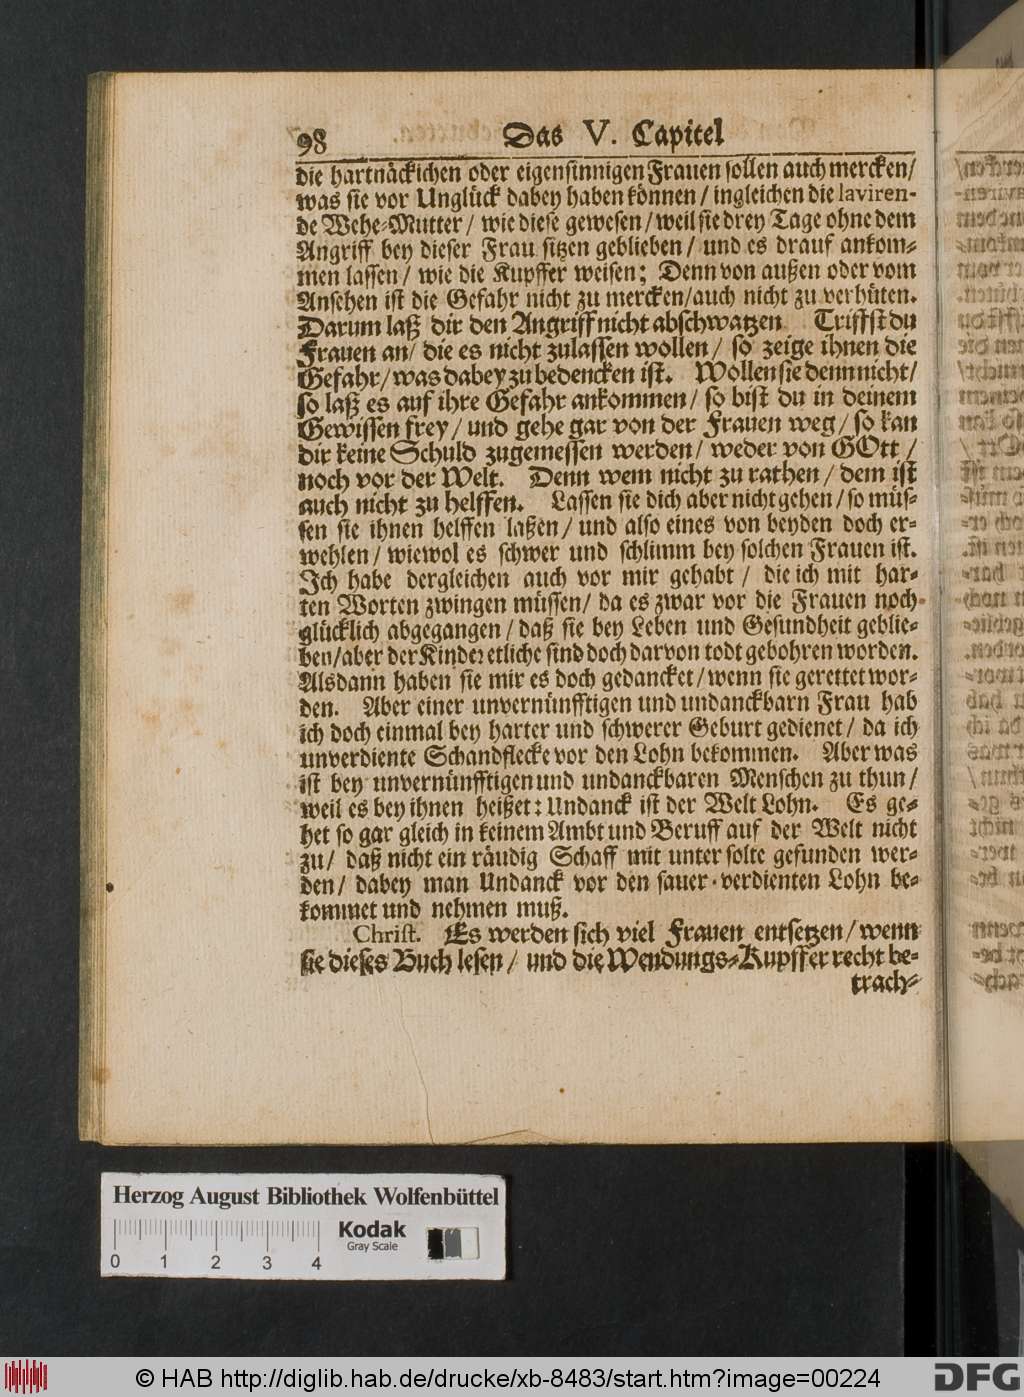 98 Das V. Capitel
die hartnäckichen oder eigensinnigen Frauen sollen auch mercken/
was sie vor Unglück dabey haben können / ingleichen die laviren-
de Wehe-Mutter / wie diese gewesen / weil sie drey Tage ohne dem
Angriff bey dieser Frau sitzen geblieben / und es drauf ankom-
men lassen / wie die Kupffer weisen; Denn von außen oder vom
Ansehen ist die Gefahr nicht zu mercken/auch nicht zu verhüten.
Darum laß dir den Angriff nicht abschwatzen Triffst du
Frauen an/ die es nicht zulassen wollen / so zeige ihnen die
Gefahr/ was dabey zu bedencken ist. Wollen sie denn nicht/
so laß es auf ihre Gefahr ankommen / so bist du in deinem
Gewissen frey / und gehe gar von der Frauen weg / so kan
dir keine Schuld zugemessen werden / weder von GOtt /
noch vor der Welt. Denn wem nicht zu rathen / dem ist
auch nicht zu helffen. Lassen sie dich aber nicht gehen / so müs-
sen sie ihnen helffen laßen / und also eines von beyden doch er-
wehlen / wiewol es schwer und schlimm bey solchen Frauen ist.
Ich habe dergleichen auch vor mir gehabt / die ich mit har-
ten Worten zwingen müssen/ da es zwar vor die Frauen noch
glücklich abgegangen / daß sie bey Leben und Gesundheit geblie-
ben/aber der Kinder etliche sind doch darvon todt gebohren worden.
Alsdann haben sie mir es doch gedancket / wenn sie gerettet wor-
den. Aber einer unvernünfftigen und undanckbarn Frau hab
ich doch einmal bey harter und schwerer Geburt gedienet / da ich
unverdiente Schandflecke vor den Lohn bekommen. Aber was
ist bey unvernünfftigen und undanckbaren Menschen zu thun /
weil es bey ihnen heißet: Undanck ist der Welt Lohn. Es ge-
het so gar gleich in keinem Ambt und Beruff auf der Welt nicht
zu / daß nicht ein räudig Schaff mit unter solte gefunden wer-
den / dabey man Undanck vor den sauer-verdienten Lohn be-
kommet und nehmen muß.
Christ. Es werden sich viel Frauen entsetzen / wenn
sie dieses Buch lesen / und die Wendungs-Kupffer recht be-
trach-
Herzog August Bibliothek Wolfenbüttel
Kodak
Gray Scale
0 1 2 3 4
© HAB http://diglib.hab.de/drucke/xb-8483/start.htm?image=00224
DFG